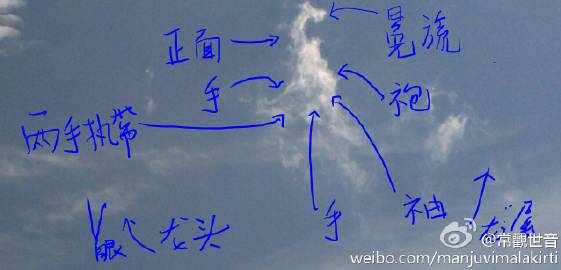 冕旒
正面
手
袍
两手执带
眼
龙头
手
袖
龙尾
@常觀世音
weibo.com/manjuvimalakirti